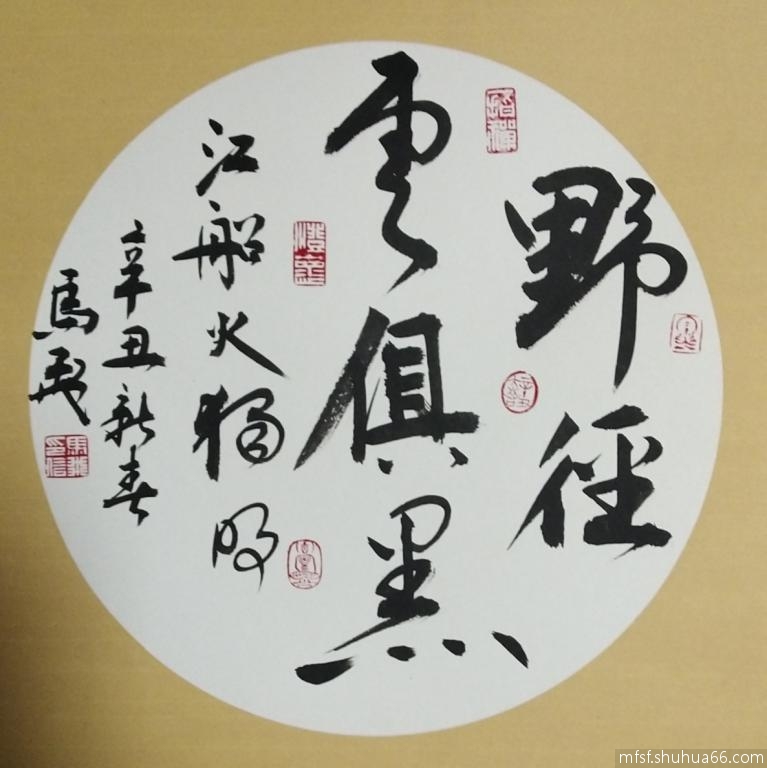 野徑
雲俱黑
江船火獨明
辛丑新春
馬
mfsf.shuhua66.com